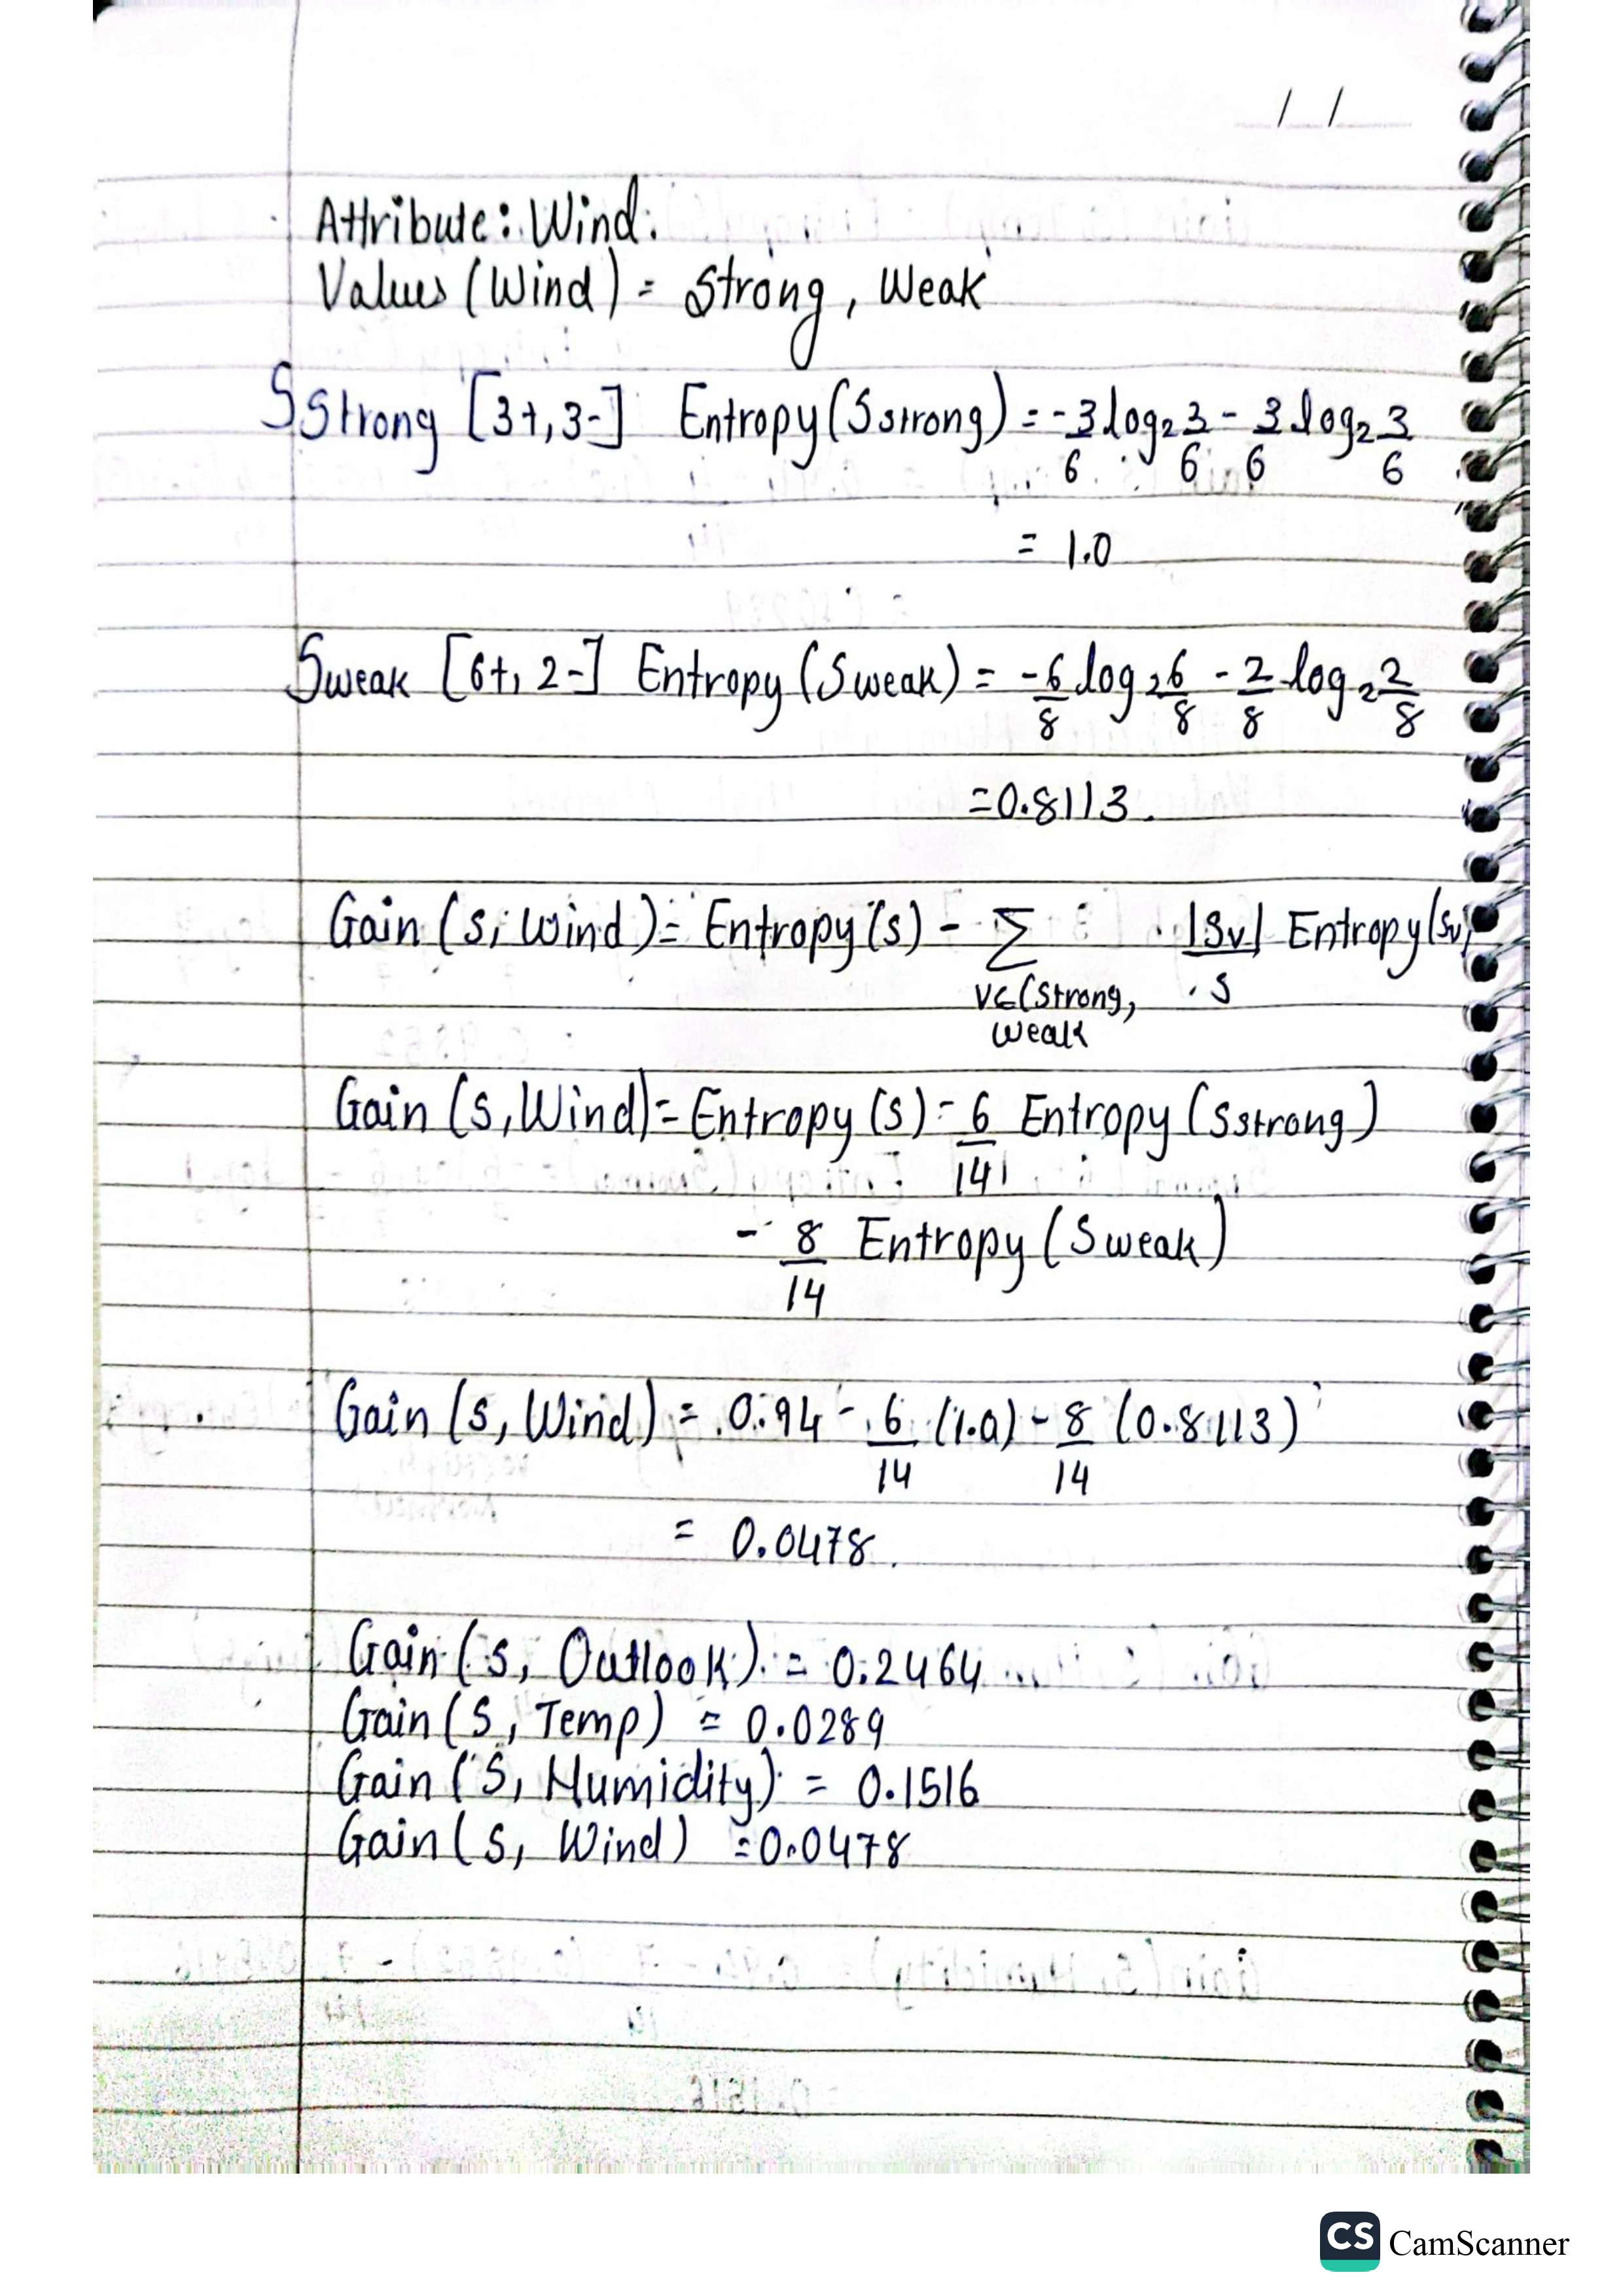 / /
Attribute: Wind.
Values (Wind) = Strong, Weak
SStrong [3+, 3-] Entropy (Sstrong) = -3/6 log2 3/6 - 3/6 log2 3/6
= 1.0
Sweak [6+, 2-] Entropy (Sweak) = -6/8 log2 6/8 - 2/8 log2 2/8
= 0.8113.
Gain (S, Wind) = Entropy (S) - Σ |Sv|/S Entropy (Sv)
V∈(Strong,
weak
Gain (S, Wind) = Entropy (S) - 6/14 Entropy (Sstrong)
- 8/14 Entropy (Sweak)
Gain (S, Wind) = 0.94 - 6/14 (1.0) - 8/14 (0.8113)
= 0.0478.
Gain (S, Outlook) = 0.2464
Gain (S, Temp) = 0.0289
Gain (S, Humidity) = 0.1516
Gain (S, Wind) = 0.0478
CS CamScanner